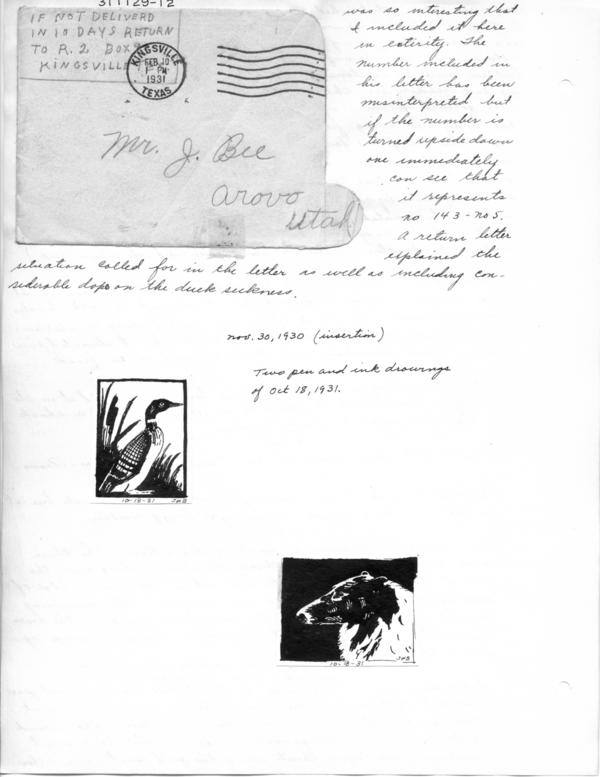 311129-12
IF NOT DELIVERD
IN 10 DAYS RETURN
TO R.2 BOX
KINGSVILLE
KINGSVILLE
FEB 10
1 PM
1931
TEXAS
Mr. J. Bee
Arovo
Utah
was so interesting that
I included it here
in entirity. The
number included in
his letter has been
misinterpreted but
if the number is
turned upside down
one immediately
can see that
it represents
no 143-no 5.
A return letter
esplained the
situation called for in the letter as well as including con-
siderable dope on the duck sickness.
nov. 30, 1930 (insertion)
Two pen and ink drawings
of Oct 18, 1931.
10-18-31 JHB
10-18-31 JHB